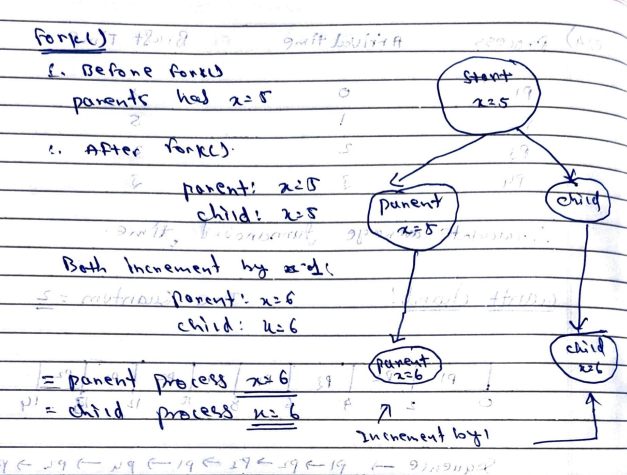 fork()
1. Before fork()
parents had x=5
2. After fork().
parent: x=5
child: x=5
Both Increment by 1:
parent: x=6
child: x=6
= parent process x=6
= child process x=6
Start
x=5
parent
x=5
child
parent
x=6
child
x=6
Increment by 1